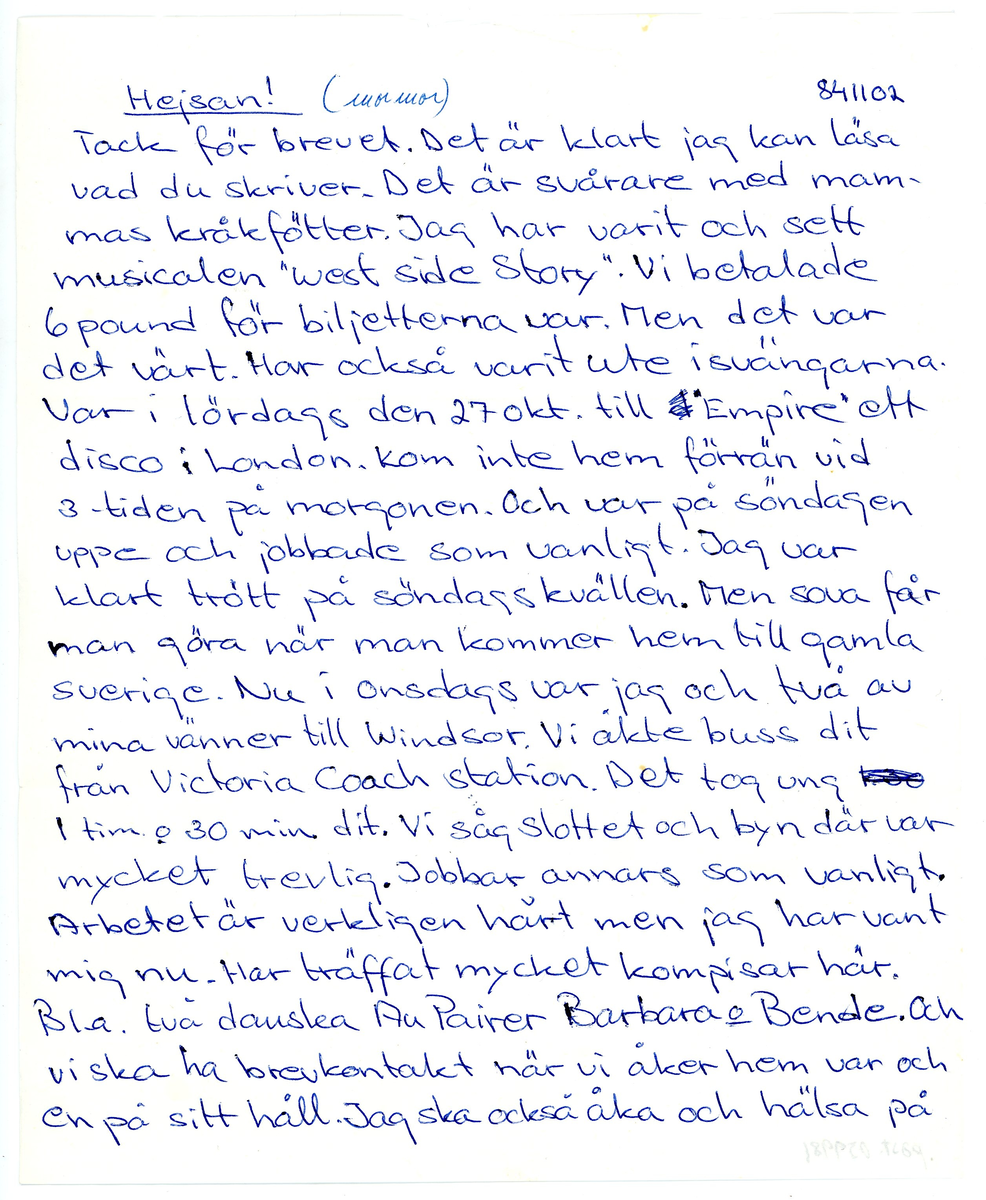 Hejsan! (mormor) 841102
Tack för brevet. Det är klart jag kan läsa
vad du skriver. Det är svårare med mam-
mas kråkfötter. Jag har varit och sett
musicalen "West side Story". Vi betalade
6 pound för biljetterna var. Men det var
det värt. Har också varit ute i svängarna.
Var i lördags den 27 okt. till "Empire" ett
disco i London. Kom inte hem förrän vid
3-tiden på morgonen. Och var på söndagen
uppe och jobbade som vanligt. Jag var
klart trött på söndagskvällen. Men sova får
man göra när man kommer hem till gamla
sverige. Nu i onsdags var jag och två av
mina vänner till Windsor. Vi åkte buss dit
från Victoria Coach station. Det tog ung
1 tim. o 30 min. dit. Vi såg slottet och byn där var
mycket trevlig. Jobbar annars som vanligt.
Arbetet är verkligen hårt men jag har vant
mig nu. Har träffat mycket kompisar här.
Bl.a. två danska Au Pairer Barbara o Bende. Och
vi ska ha brevkontakt när vi åker hem var och
en på sitt håll. Jag ska också åka och hälsa på